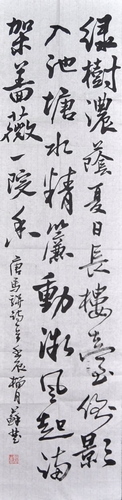 綠樹濃蔭夏日長樓臺倒影
入池塘水精簾動微風起滿
架薔薇一院香 唐高駢詩 壬辰 月